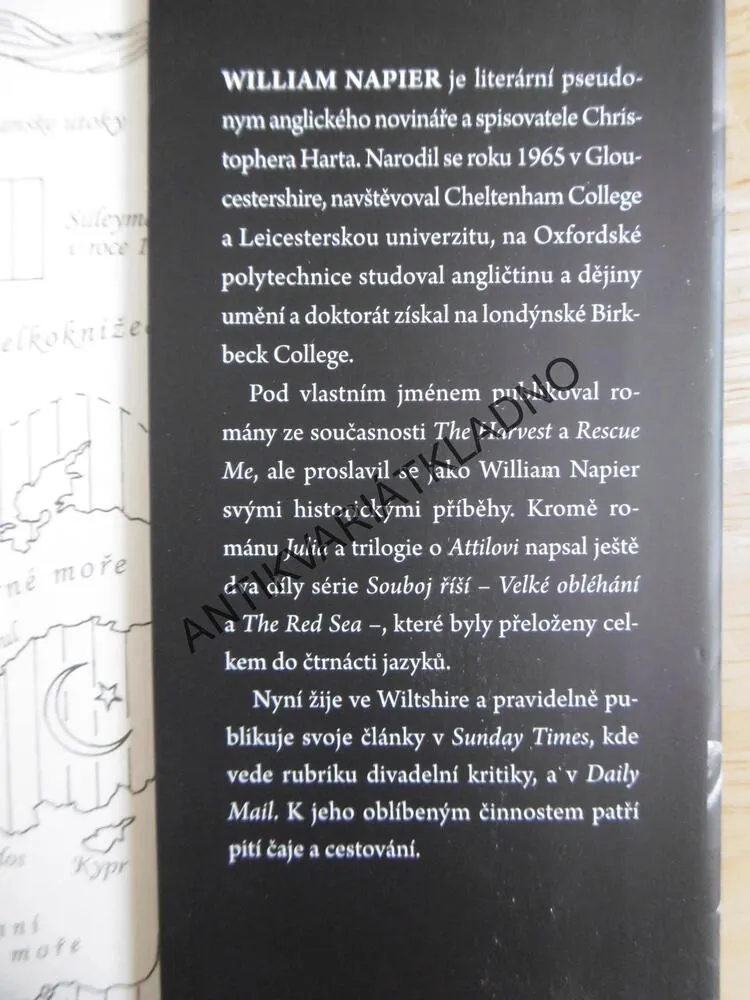 WILLIAM NAPIER je literární pseudo-
nym anglického novináře a spisovatele Chris-
tophera Harta. Narodil se roku 1965 v Glou-
cestershire, navštěvoval Cheltenham College
a Leicesterskou univerzitu, na Oxfordské
polytechnice studoval angličtinu a dějiny
umění a doktorát získal na londýnské Birk-
beck College.
Pod vlastním jménem publikoval ro-
mány ze současnosti The Harvest a Rescue
Me, ale proslavil se jako William Napier
svými historickými příběhy. Kromě ro-
mánu Julia a trilogie o Attilovi napsal ještě
dva díly série Souboj říší – Velké obléhání
a The Red Sea –, které byly přeloženy cel-
kem do čtrnácti jazyků.
Nyní žije ve Wiltshire a pravidelně pu-
blikuje svoje články v Sunday Times, kde
vede rubriku divadelní kritiky, a v Daily
Mail. K jeho oblíbeným činnostem patří
pití čaje a cestování.
ANTIKVARIÁTKLADNO
útoky
v roce 1
moře
Kypr
moře